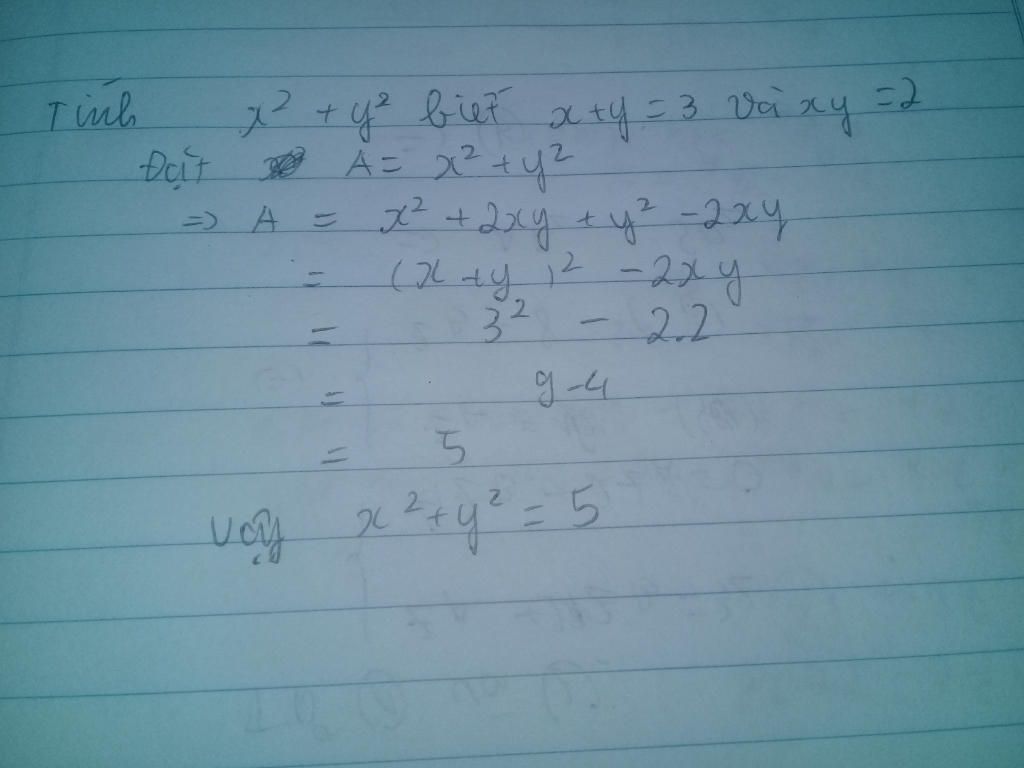 Tính x² + y² biết x+y = 3 và xy = 2
Đặt A = x² + y²
=> A = x² + 2xy + y² - 2xy
= (x + y)² - 2xy
= 3² - 2.2
= 9 - 4
= 5
Vậy x² + y² = 5